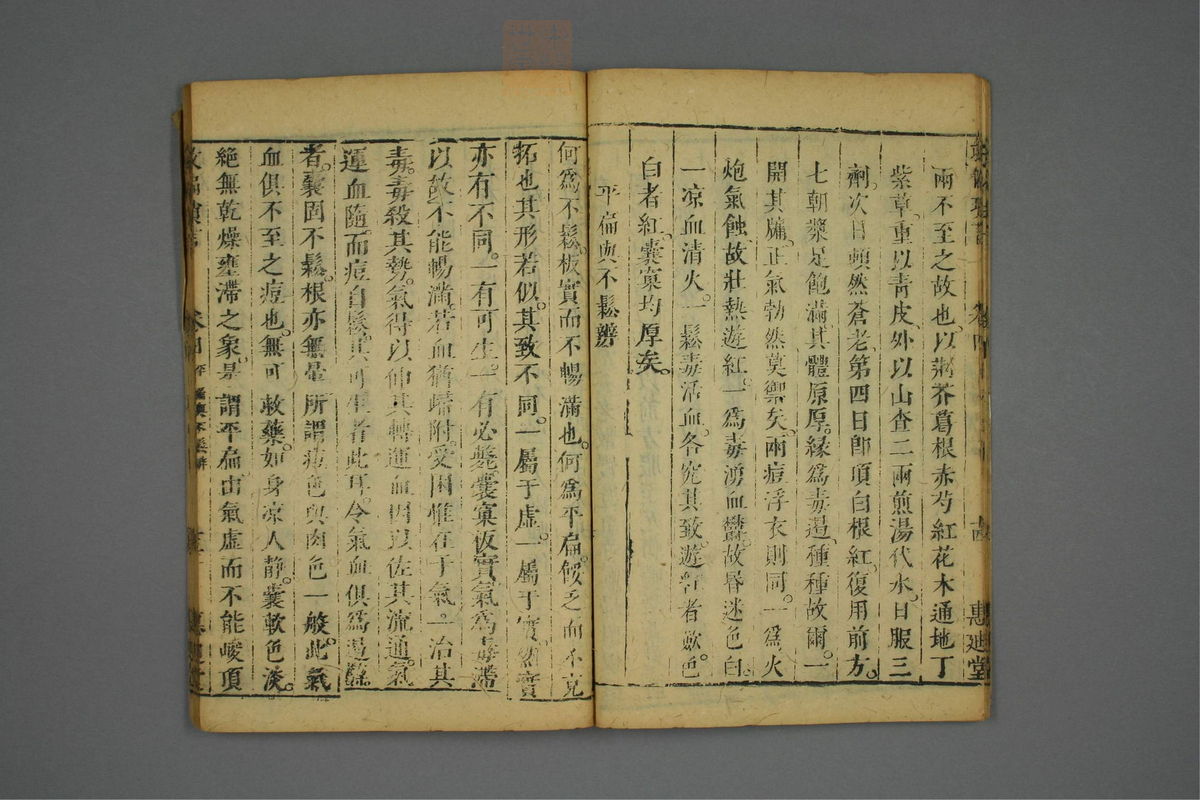 兩不至之故也以荊芥葛根赤芍紅花木通地丁
紫草重以青皮外以山查二兩煎湯代水日服三
劑次日頓然蒼老第四日即頂白根紅復用前方
七朝漿足飽滿其體原厚緣為毒遏種種故爾一
開其牖正氣勃然莫禦矣兩痘浮衣則同一為火
炮氣蝕故壯熱遊紅一為毒湧血鬱故昏迷色白
一凉血清火一鬆毒活血各究其致遊紅者歛色
白者紅囊窠均厚矣
平扁與不鬆辨
何為不鬆板實而不暢滿也何為平扁餒乏而不克
拓也其形若似其致不同一屬于虛一屬于實然實
亦有不同一有可生一有必斃囊窠板實氣為毒滯
以故不能暢滿若血猶歸附受困惟在于氣一治其
毒毒殺其勢氣得以伸其轉運血因以佐其流通氣
運血隨而痘自鬆其可生者此耳令氣血俱為遏
者囊固不鬆根亦無暈所謂痘色與肉色一般此氣
血俱不至之痘也無可救藥如身凉人静囊軟色淡
絶無乾燥壅滯之象是謂平扁由氣虛而不能峻頂
卷四
惠迪堂